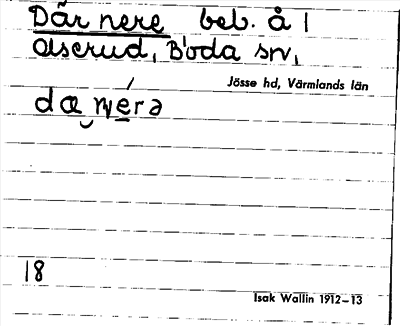 Där nere beb. å 1
Aserud, Boda sn,
Jösse hd, Värmlands län
18
Isak Wallin 1912-13